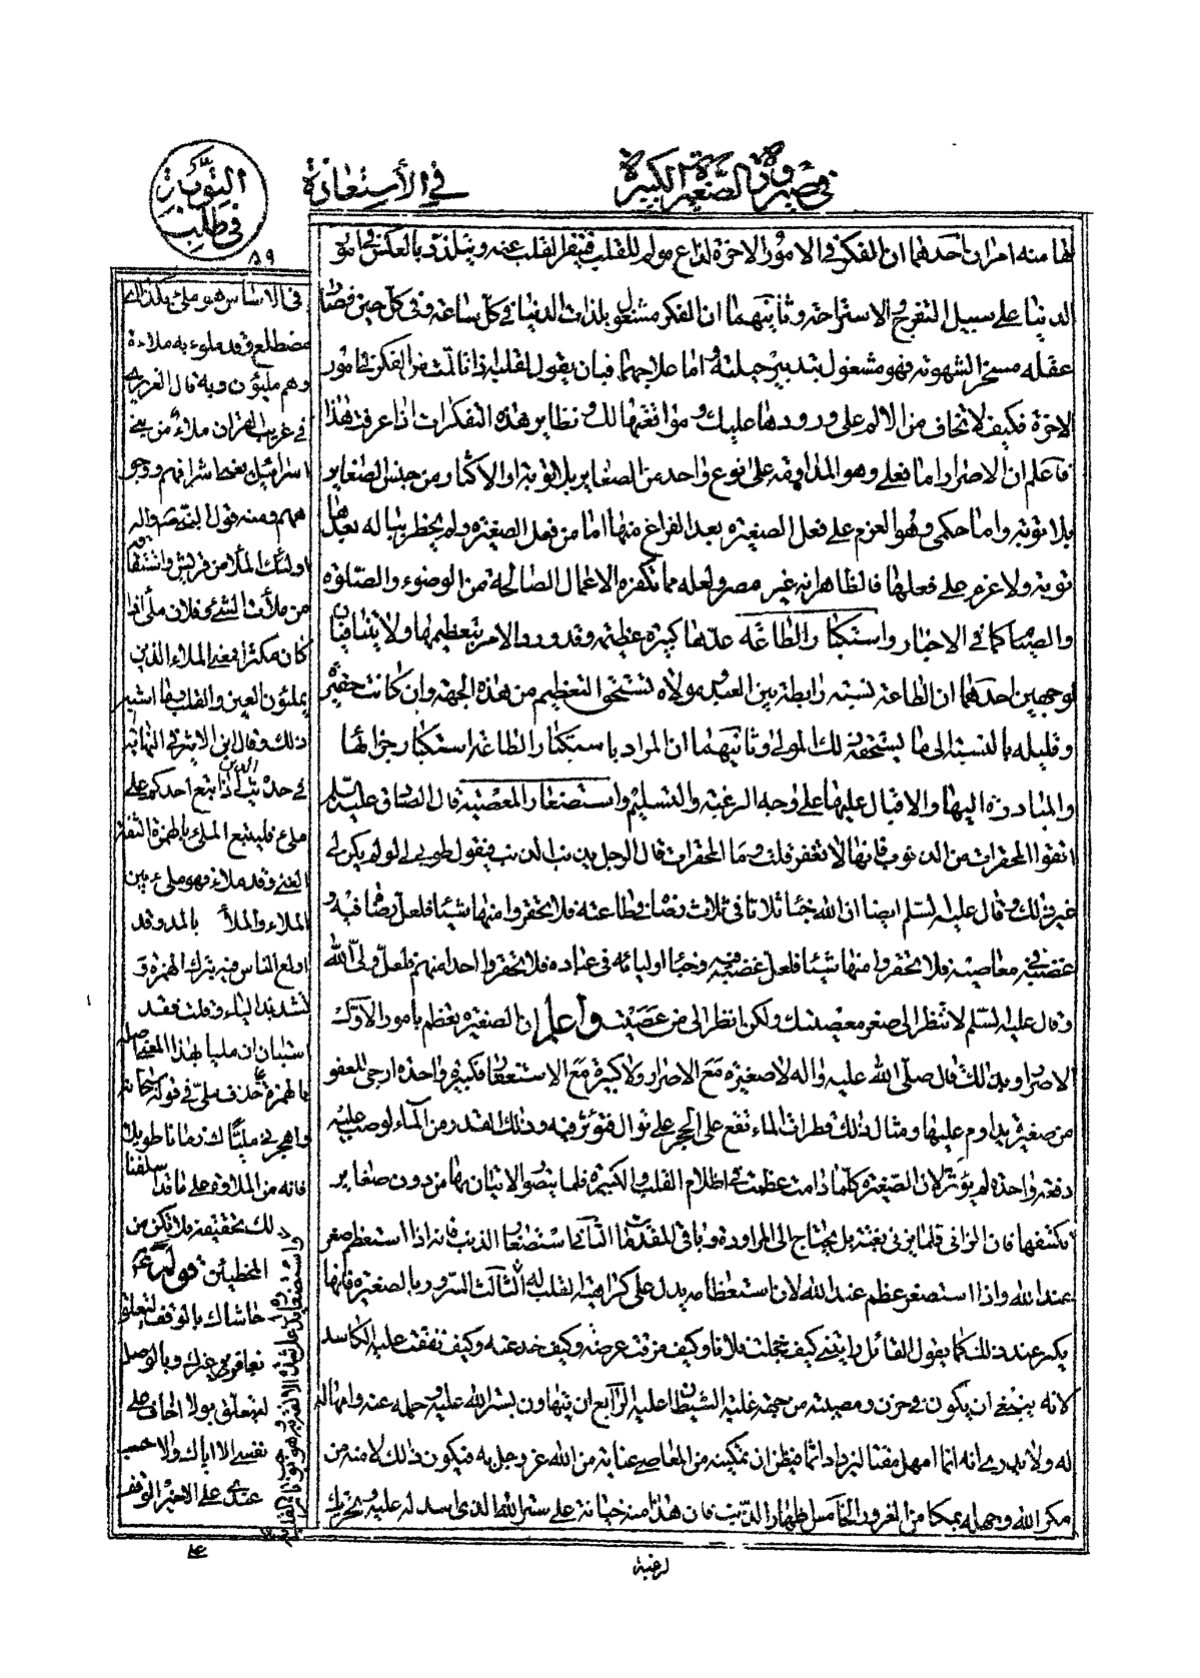 في صيرورة الصغيرة الكبيرة
في الاستعاذة
في طلب التوبة
٨٩
لها منه امران احدهما ان الفكر في الامور الاخرة لذاع مولم للقلب فينفر القلب عنه ويتلذذ بالعكس في امور
الدنيا على سبيل التفريح الاستراحة وثانيهما ان الفكر مشغول بلذات الدنيا في كل ساعة وفي كل حين فصار
عقله مسخر الشهوته فهو مشغول بتدبير حيلته واما علاجهما فبان يقول لقلبه اذا تالمت من الفكر في امور
الاخرة فكيف لا تخاف من الالم على ورودها عليك ومواقعتها لك ونظاير هذه التفكرات اذا عرفت هذا
فاعلم ان الاصرار اما فعلي وهو المداومة على نوع واحد من الصغاير بلا توبة او الاكثار من جنس الصغاير
بلا توبة واما حكمي وهو العزم على فعل الصغيرة بعد الفراغ منها اما من فعل الصغيرة ولم يخطر بباله بعدها
توبة ولا عزم على فعلها فالظاهر انه غير مصر ولعله مما تكفره الاعمال الصالحة من الوضوء والصلوة
والصيام كما في الاخبار واستكبار الطاعة عدها كبيرة عظيمة وقد ورد الامر بتعظيمها ولا يتنافيان
لوجهين احدهما ان الطاعة نسبة رابطة بين العبد ومولاه تستحق التعظيم من هذه الجهة وان كانت حقيرة
وقليلة بالنسبة الى ما يستحقه ذلك المولى وثانيهما ان المراد باستكبار الطاعة استكبار جزائها
والمبادرة اليها والاقبال عليها على وجه الرغبة والتسليم واستصغار المعصية قال الصادق عليه السلم
اتقوا المحقرات من الذنوب فانها لا تغفر قلت وما المحقرات قال الرجل يذنب الذنب فيقول طوبى لي لو لم يكن لي
غير ذلك وقال عليه السلم ايضا ان الله خبا ثلاثا في ثلاث رضاه في طاعته فلا تحقروا منها شيئا فلعل رضاه فيه و
غضبه في معاصيه فلا تحقروا منها شيئا فلعل غضبه فيه وخبا اوليائه في عباده فلا تحقروا احدا منهم فلعله ولي الله
وقال عليه السلم لا تنظر الى صغر معصيتك ولكن انظر الى من عصيت واعلم ان الصغيرة يعظم بامور الاول
الاصرار وبذلك قال صلى الله عليه واله لا صغيرة مع الاصرار ولا كبيرة مع الاستغفار فكبيرة واحدة ارجى للعفو
من صغيرة يداوم عليها ومثال ذلك قطرات الماء تقع على الحجر على توال فتؤثر فيه وذلك القدر من الماء لو صب عليه
دفعة واحدة لم يؤثر لان الصغيرة كلما دامت عظمت في اظلام القلب والكبيرة قلما يتصور الاتيان بها من دون صغاير
تكتنفها فان الزاني قلما يزني بغتة بل يحتاج الى المراودة وباقي المقدمات الثاني استصغار الذنب فانه اذا استعظم صغر
عند الله واذا استصغر عظم عند الله لان استعظامه يدل على كراهية القلب له الثالث السرور بالصغيرة فانها
يكبر عند ذلك كما يقول القائل رايتني كيف خجلت فلانا وكيف مزقت عرضه وكيف خدعته وكيف نفقت عليه الكاسد
لانه ينبغي ان يكون في حزن ومصيبة من جهة غلبة الشيطان عليه الرابع ان يتهاون بستر الله عليه وحمله عنه وامهاله
له ولا يدري انه انما امهل مقتا ليزداد اثما فيظن ان تمكينه من المعاصي عناية من الله عز وجل به فيكون ذلك لامنه من
مكر الله وجهله بمكامن الغرور الخامس اظهار الذنب فان هذا منه خيانة على ستر الله الذي اسدله عليه وتحريك
لرغبة
في الاساس هو ملئ بكذا اي
مضطلع وقد ملوء به ملاءة
وهم مليؤن وبه قال العزيزي
في غريب القران ملاء من بني
اسرائيل يعني اشرافهم ووجو
ههم ومنه قول النبي ص واله
اولئك الملا من قريش واشتقاقه
من ملات الشئ وفلان ملئ اذا
كان مكثرا فمعنى الملاء الذين
يملئون العين والقلب وما اشبه
ذلك وقال ابن الاثير في النهاية
في حديث الدين اذا اتبع احدكم على
ملئ فليتبع الملئ بالهمزة الثقة
الغني وقد ملاء فهو ملئ بين
الملاء والملاءة بالمد وقد
اولع الناس فيه بترك الهمزة و
تشديد الياء وقلت فقد
استبان ان مليا بهذا المعنى اصله
بالهمزة بخلاف ملي في قوله تعالى
واهجرني مليا اي زمانا طويلا
فانه من الملاوة على ما قد اسلفنا
لك تحقيقه فلا تكن من
المخطئين قوله
حاشاك بالوقف لتعلق
نفسه الا اياك والاحسن
عندي على الاخير الوقف